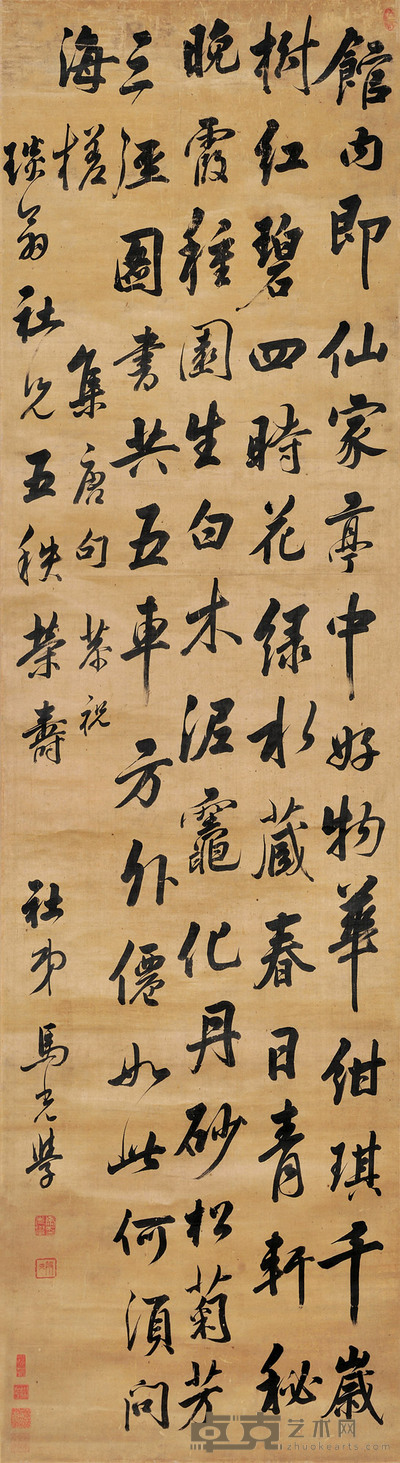 館内即仙家亭中好物華紺琪千歲
樹紅碧四時花綠水藏春日青軒秘
晚霞種園生白木泥竈化丹砂松菊芳
三逕圖書共五車方外僊如此何須問
海槎
集唐句恭祝
琰翁社兄五秩榮壽
社弟馬光學
卓克艺术网
zhuokearts.com